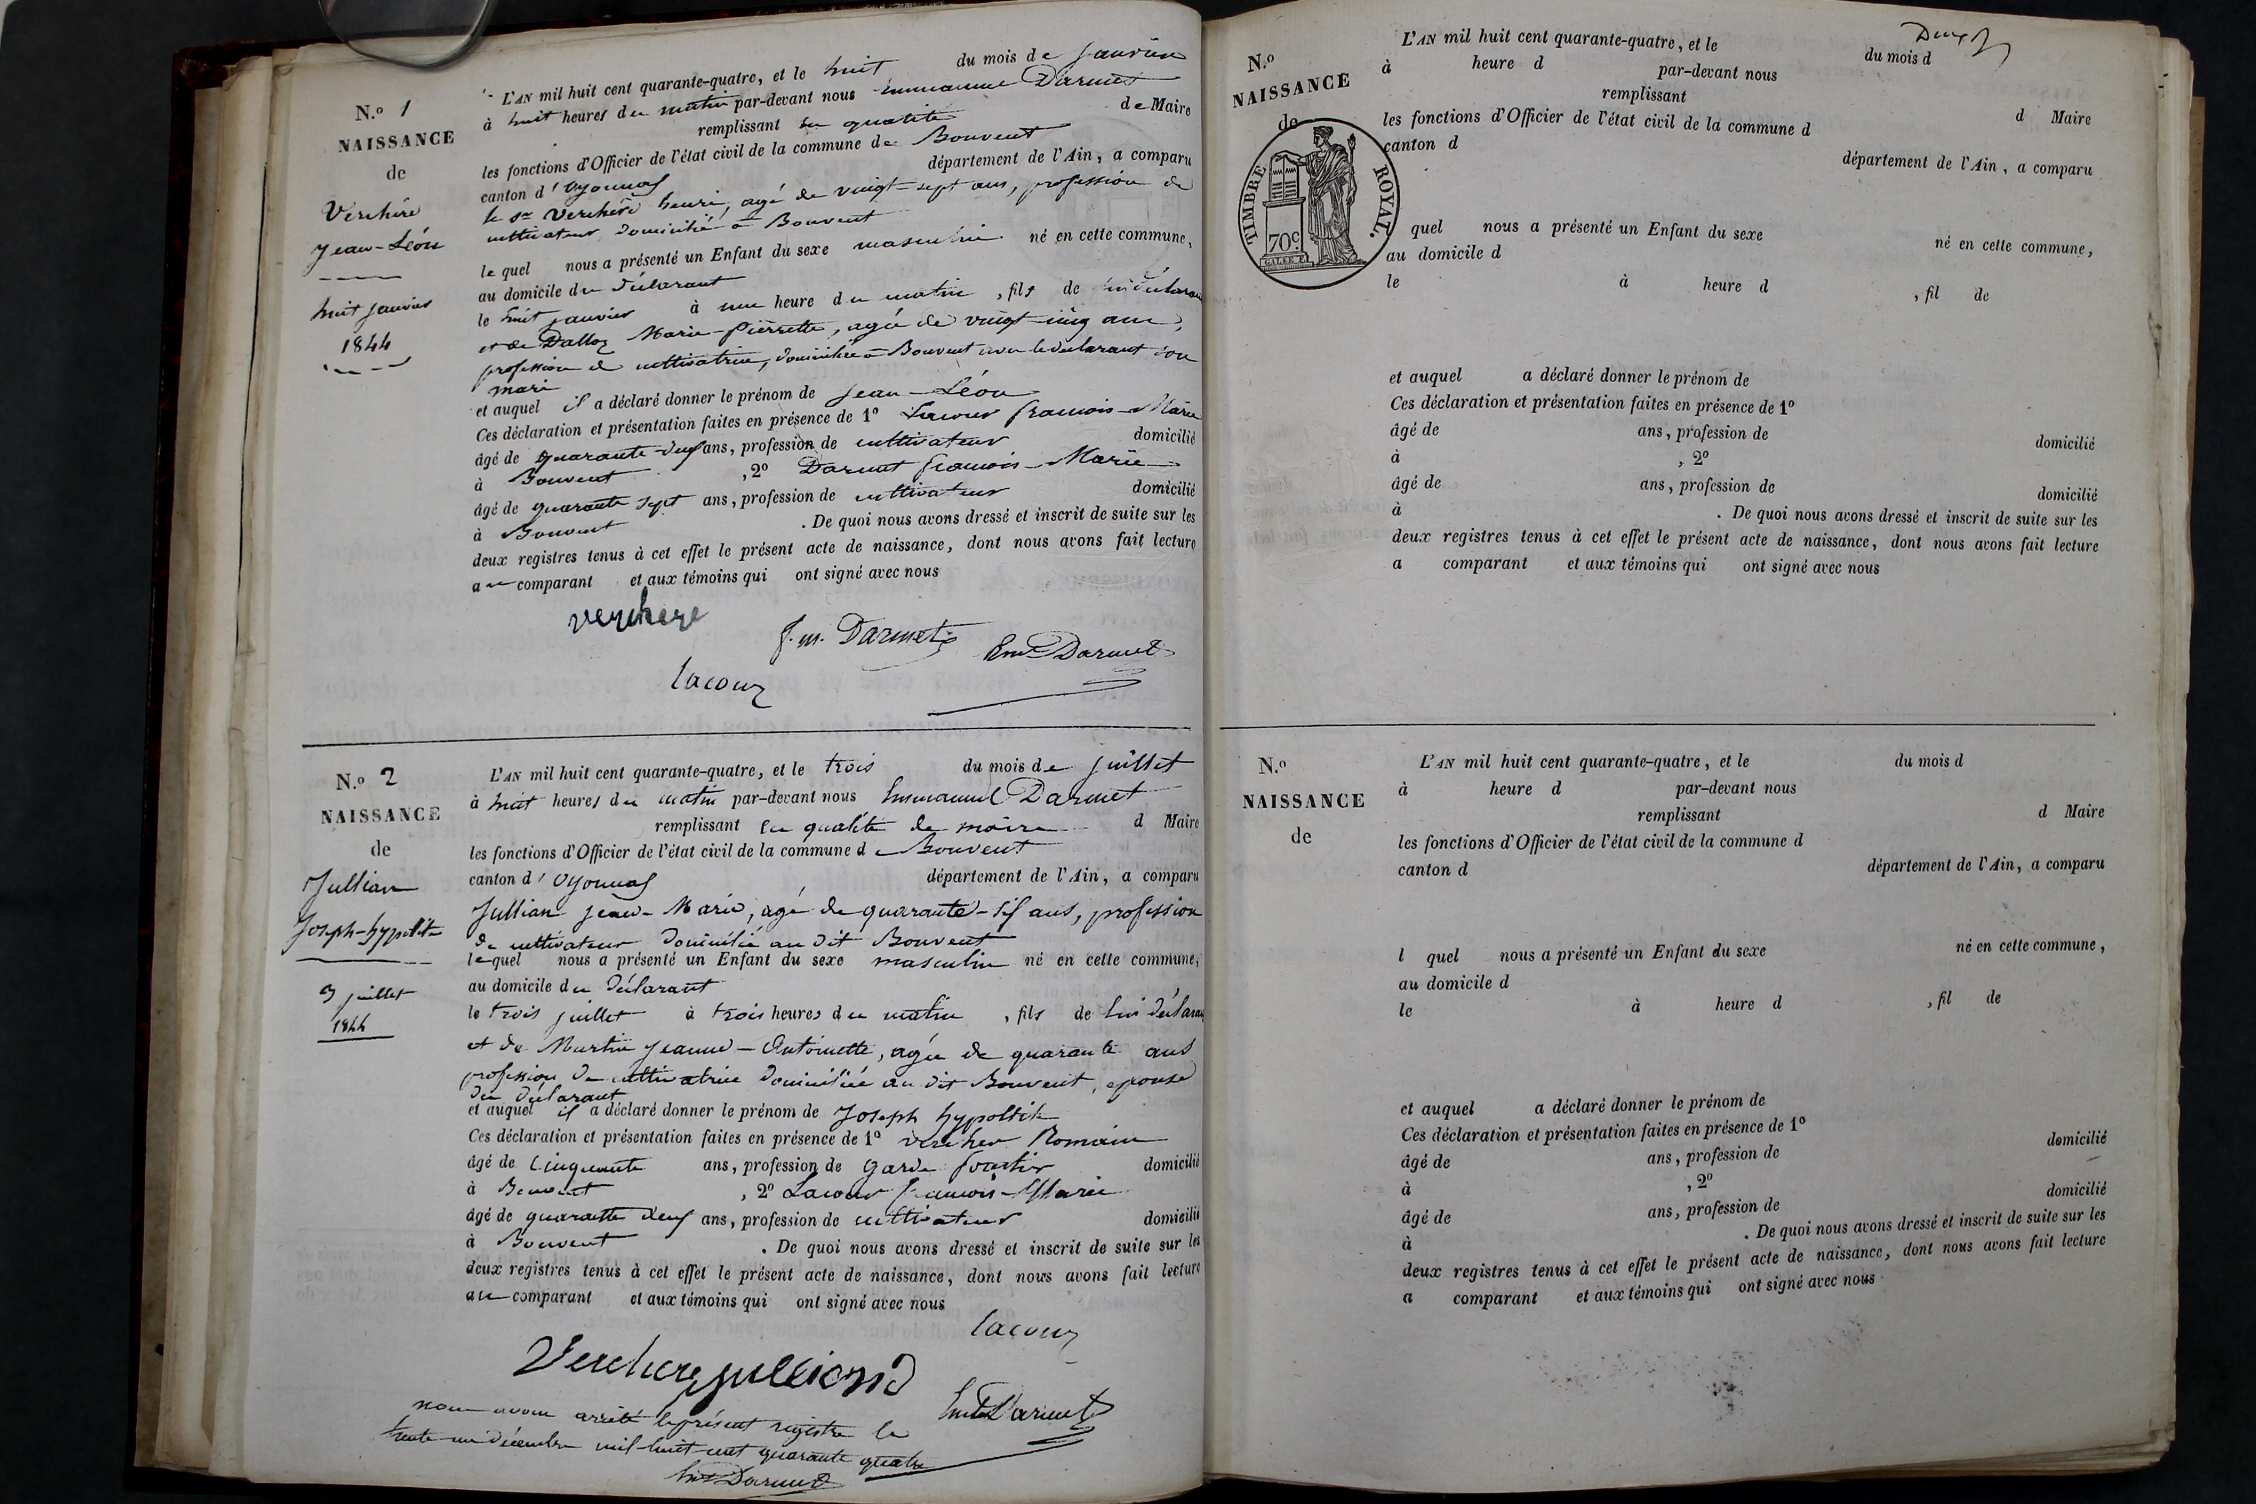 N.o 1
NAISSANCE
de
Verchère
Jean-Léon
huit janvier
1844
L'AN mil huit cent quarante-quatre, et le huit du mois de janvier
à huit heures du matin par-devant nous Emmanuel Darmet
remplissant en qualité de Maire
les fonctions d'Officier de l'état civil de la commune de Bouvent
canton d'Oyonnax département de l'Ain, a comparu
le sr Verchère henri, agé de vingt-sept ans, profession de
cultivateur domicilié à Bouvent
le quel nous a présenté un Enfant du sexe masculin né en cette commune,
au domicile du déclarant
le huit janvier à une heure du matin, fils de lui déclarant
et de Dalloz Marie-pierrette, agée de vingt-cinq ans,
profession de cultivatrice, domiciliée à Bouvent avec le déclarant son
mari
et auquel il a déclaré donner le prénom de Jean-Léon
Ces déclaration et présentation faites en présence de 1o Lacour francois-Marie
âgé de quarante-deux ans, profession de cultivateur domicilié
à Bouvent, 2o Darmet francois-Marie
âgé de quarante sept ans, profession de cultivateur domicilié
à Bouvent. De quoi nous avons dressé et inscrit de suite sur les
deux registres tenus à cet effet le présent acte de naissance, dont nous avons fait lecture
au comparant et aux témoins qui ont signé avec nous
verchere
f. m. Darmet Em Darmet
lacour
N.o 2
NAISSANCE
de
Jullian
Joseph-hypolite
3 juillet
1844
L'AN mil huit cent quarante-quatre, et le trois du mois de juillet
à huit heures du matin par-devant nous Emmanuel Darmet
remplissant en qualité de maire d Maire
les fonctions d'Officier de l'état civil de la commune d Bouvent
canton d'Oyonnax département de l'Ain, a comparu
Jullian jean-Marie, agé de quarante-six ans, profession
de cultivateur domicilié au dit Bouvent
lequel nous a présenté un Enfant du sexe masculin né en cette commune,
au domicile du déclarant
le trois juillet à trois heures du matin, fils de lui déclarant
et de Martin jeanne-Antoinette, agée de quarante ans
profession de cultivatrice domiciliée au dit Bouvent, epouse
du déclarant
et auquel il a déclaré donner le prénom de Joseph hypolite
Ces déclaration et présentation faites en présence de 1o vercher Romain
âgé de cinquante ans, profession de garde forestier domicilié
à Bouvent, 2o Lacour francois-Marie
âgé de quarante deux ans, profession de cultivateur domicilié
à Bouvent. De quoi nous avons dressé et inscrit de suite sur les
deux registres tenus à cet effet le présent acte de naissance, dont nous avons fait lecture
au comparant et aux témoins qui ont signé avec nous
lacour
Verchere jullian
Darmet
nous avons arrêté le présent registre le
trente un décembre mil huit cent quarante quatre
Darmet
N.o
NAISSANCE
de
TIMBRE ROYAL.
70c.
L'AN mil huit cent quarante-quatre, et le du mois d
à heure d par-devant nous
remplissant d Maire
les fonctions d'Officier de l'état civil de la commune d
canton d département de l'Ain, a comparu
quel nous a présenté un Enfant du sexe né en cette commune,
au domicile d
le à heure d, fil de
et auquel a déclaré donner le prénom de
Ces déclaration et présentation faites en présence de 1o
âgé de ans, profession de domicilié
à, 2o
âgé de ans, profession de domicilié
à. De quoi nous avons dressé et inscrit de suite sur les
deux registres tenus à cet effet le présent acte de naissance, dont nous avons fait lecture
a comparant et aux témoins qui ont signé avec nous
N.o
NAISSANCE
de
L'AN mil huit cent quarante-quatre, et le du mois d
à heure d par-devant nous
remplissant d Maire
les fonctions d'Officier de l'état civil de la commune d
canton d département de l'Ain, a comparu
l quel nous a présenté un Enfant du sexe né en cette commune,
au domicile d
le à heure d, fil de
et auquel a déclaré donner le prénom de
Ces déclaration et présentation faites en présence de 1o
âgé de ans, profession de domicilié
à, 2o
âgé de ans, profession de domicilié
à. De quoi nous avons dressé et inscrit de suite sur les
deux registres tenus à cet effet le présent acte de naissance, dont nous avons fait lecture
a comparant et aux témoins qui ont signé avec nous